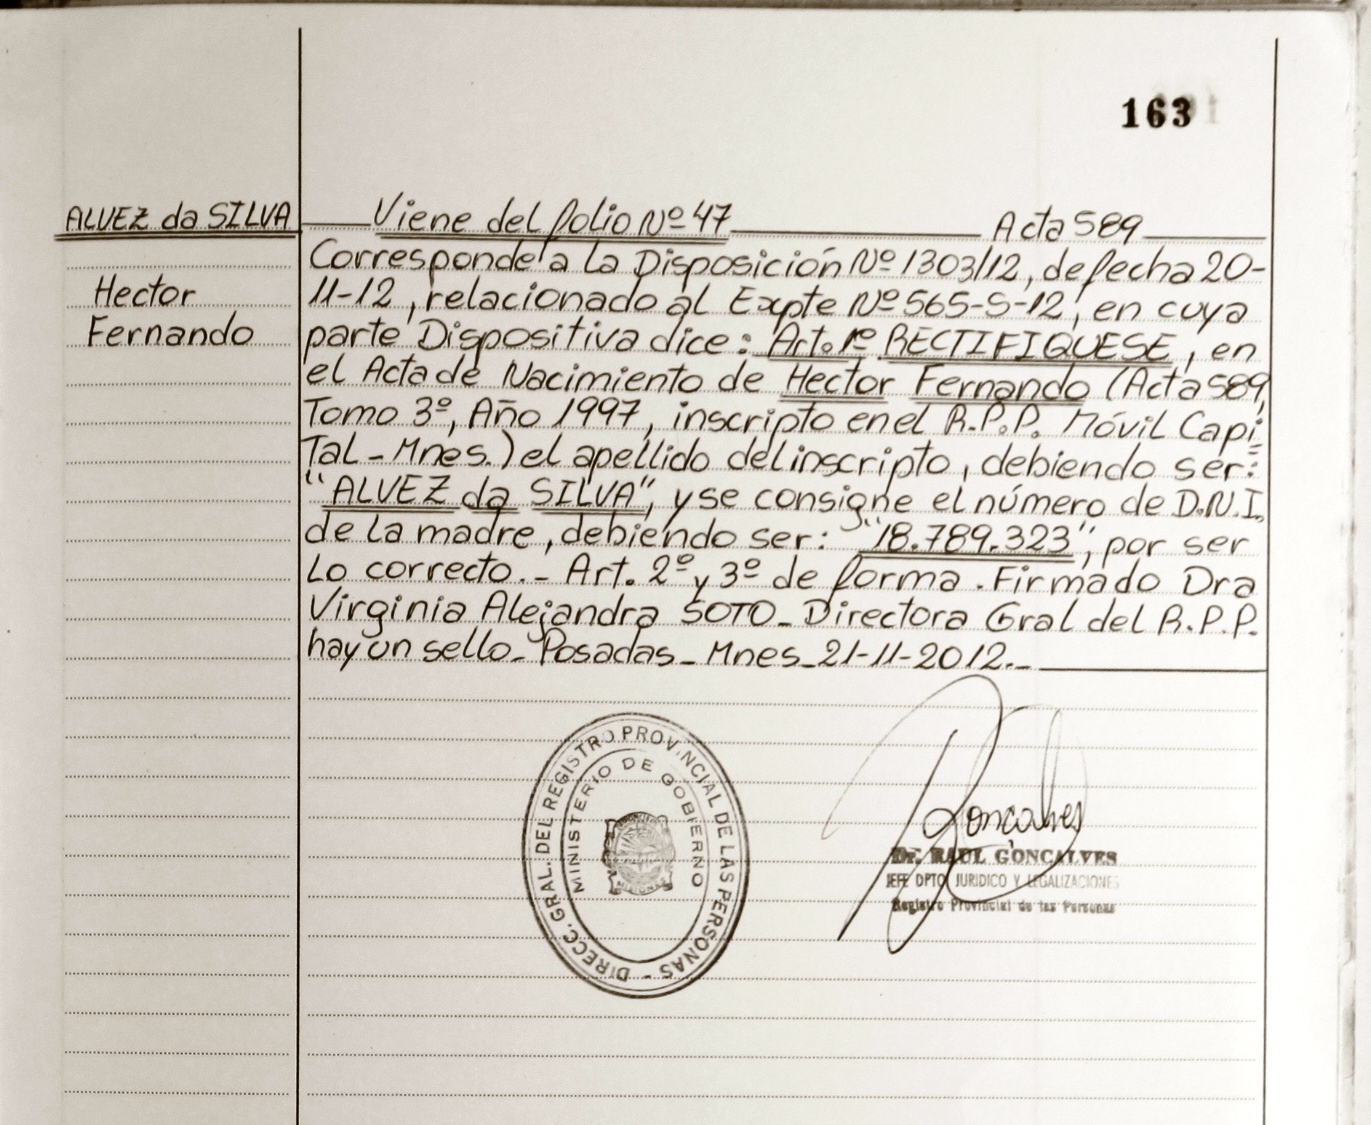 163
ALVEZ da SILVA
Hector
Fernando
Viene del folio Nº 47 Acta 589
Corresponde a la Disposición Nº 1303/12, de fecha 20-
11-12, relacionado al Expte Nº 565-S-12, en cuya
parte Dispositiva dice: Art. 1º RECTIFIQUESE, en
el Acta de Nacimiento de Hector Fernando (Acta 589,
Tomo 3º, Año 1997, inscripto en el R.P.P. Móvil Capi
Tal - Mnes.) el apellido del inscripto, debiendo ser:
"ALVEZ da SILVA", y se consigne el número de D.N.I.
de la madre, debiendo ser: "18.789.323", por ser
Lo correcto. - Art. 2º y 3º de forma. Firmado Dra
Virginia Alejandra SOTO - Directora Gral del R.P.P.
hay un sello - Posadas - Mnes - 21-11-2012. -
DIRECC. GRAL. DEL REGISTRO PROVINCIAL DE LAS PERSONAS -
MINISTERIO DE GOBIERNO
MISIONES
Goncalves
Dr. RAUL GONCALVES
JEFE DPTO JURIDICO Y LEGALIZACIONES
Registro Provincial de las Personas